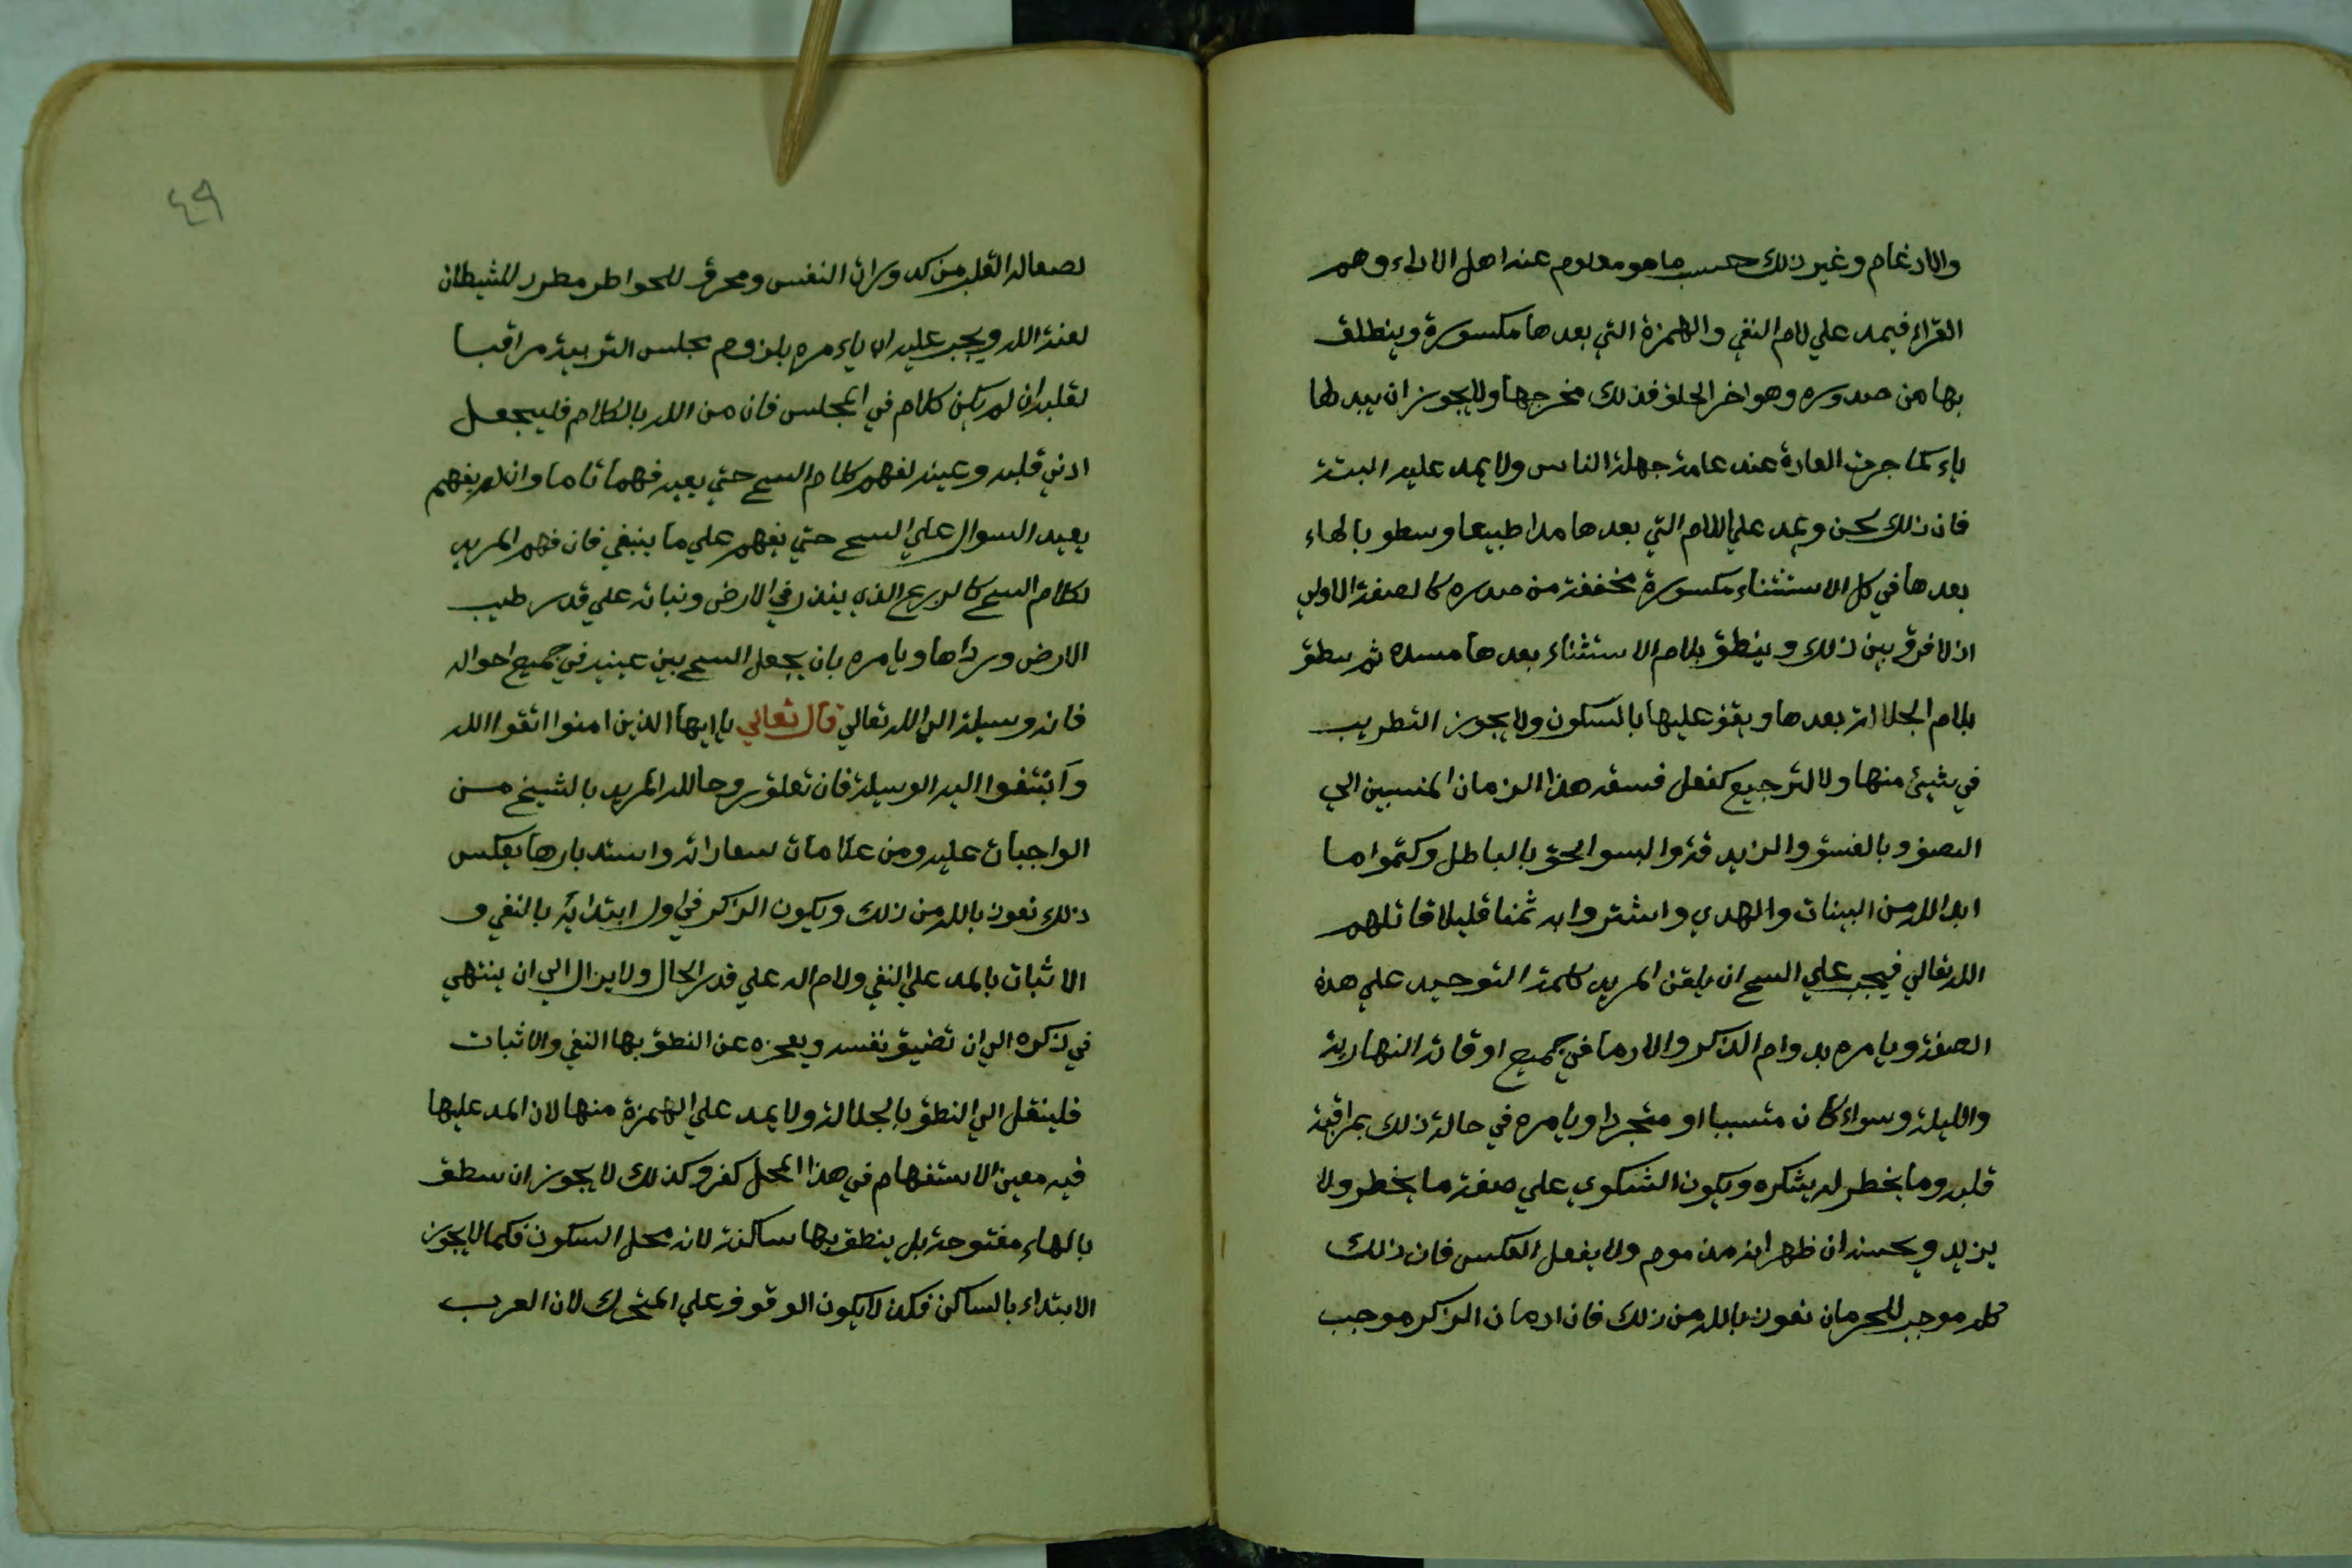 والادغام وغير ذلك حسب ما هو معلوم عند اهل الاداء وهم
القراء فيمد علي لام النفي والهمزة التي بعدها مكسورة وينطلق
بها من صدوره وهو اخر الحلق فذلك مخرجها ولا يجوز ان يبدلها
ياء كما جرت العادة عند عامة جهلة الناس ولا يمد عليه البتة
فان ذلك لحن ويمد علي اللام التي بعدها مدا طبيعا وسطو بالهاء
بعدها في كل الاستثناء مكسورة مخففة من صدره كالصفة الاولي
اذ لا فرق بين ذلك وينطق بلام الاستثناء بعدها مسده ثم سطق
بلام الجلالة بعدها ويقف عليها بالسكون ولا يجوز التطريب
في شيئ منها ولا الترجيع كفعل فسقه هذا الزمان المنسبين الي
التصوف بالفسق والزيد قة والبسوا الحق بالباطل وكتموا ما
ابد الله من البينات والهدي واشتروا به ثمنا قليلا قاتلهم
الله تعالي فيجب علي السح ان يلقن المريد كلمة التوحيد علي هذه
الصفة ويامره بدوام الذكر والادما في جميع اوقاته النهارية
والليلة وسواء كان متسببا او متجردا ويامره في حالة ذلك بمراقبة
قلبه وما يخطر له يشكره ويكون الشكوي علي صفة ما يخطر ولا
يزيد ويحسنه ان ظهر انه مذموم ولا يفعل العكس فان ذلك
كله موجب للحرمان نعوذ بالله من ذلك فان ادمان الذكر موجب
٤٩
لصعاله القلب من كدورات النفس ومحرق للحواطر مطرد للشيطان
لعنة الله ويجب عليه ان ياءمره بلزوم مجلس التربية مراقبا
لقلبه ان لم يكن كلام في المجلس فان من الله بالكلام فليجعل
ادني قلبه وعينه لفهم كلام السح حتي يعيه فهما تاما وان لم يفهم
يعيد السوال علي السح حتي يفهم علي ما ينبغي فان فهم المريد
لكلام السح كالزرع الذي ينذر في الارض ونباته علي قدر طيب
الارض ورداها ويامره بان يجعل السح بين عينيه في جميع احواله
فانه وسيلة الي الله تعالي قال تعالي يا ايها الذين امنوا اتقوا الله
وابتغوا اليه الوسيلة فان تعلق روحا لله المريد بالشيخ مسن
الواجبات عليه ومن علامات سعاداته واستدبارها بعكس
ذلك نعوذ بالله من ذلك ويكون الذكر في اول ابتدائه بالنفي و
الاثبات بالمد علي النفي ولام اله علي قدر الحال ولا يزال الي ان ينتهي
في ذكره الي ان تضيق نفسه ويعجزه عن النطق بها النفي والاثبات
فلينقل الي النطق بالجلالة ولا يمد علي الهمزة منها لان المد عليها
فيه معين الاستفهام في هذا المحل كفر وكذلك لا يجوز ان سطق
بالهاء مفتوحة بل ينطق بها ساكنة لانه محل السكون فكما لا يجوز
الابتداء بالساكن فكذ لا يكون الوقوف علي المتحرك لان العرب